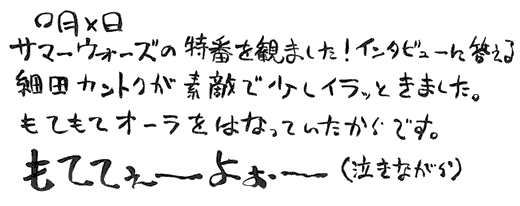 ○月×日
サマーウォーズの特番を観ました!インタビューに答える
細田カントクが素敵で少しイラッときました。
もてもてオーラをはなっていたからです。
もててぇーよぉー(泣きながら)